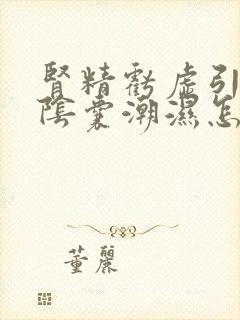 腎精虧虛引
陰囊潮濕怎
董麗